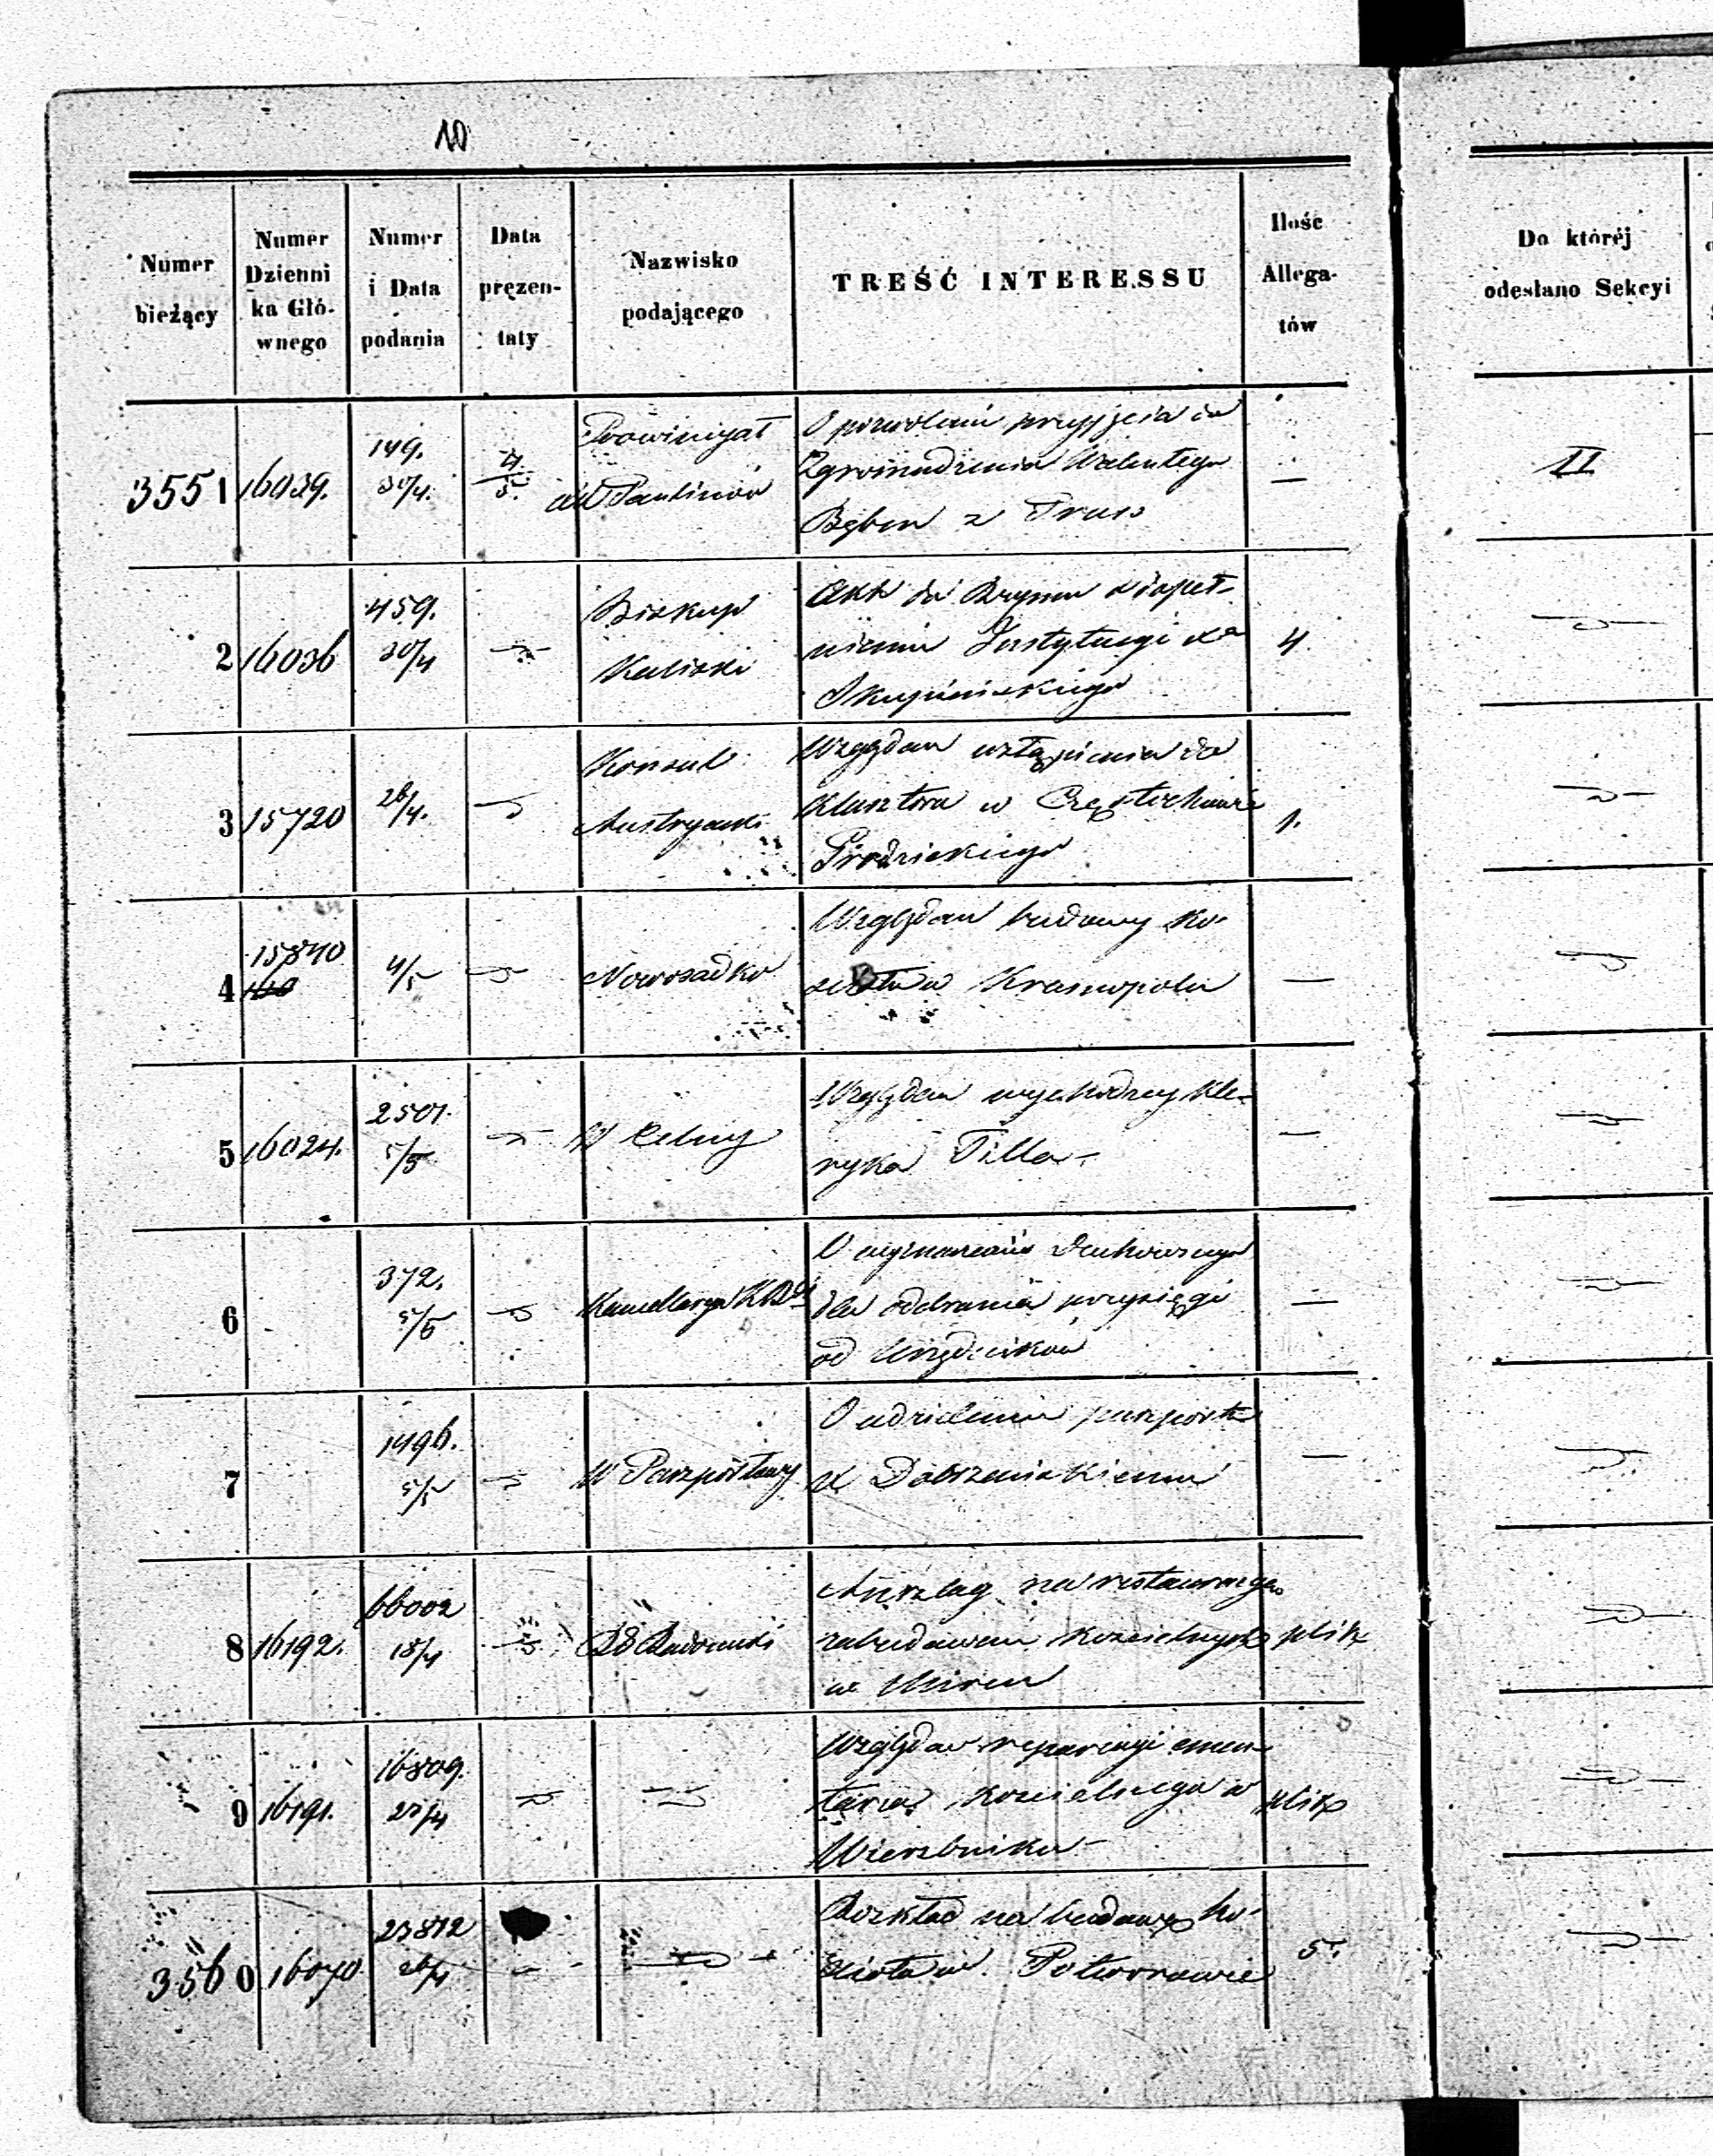 10
Numer bieżący
Numer Dzienni ka Głó- wnego
Numer i Data podania
Data prezen- taty
Nazwisko podającego
TREŚĆ INTERESSU
Ilość Allega- tów
Do którėj odesłano Sekcyi
3551
16039.
149.
30/4.
4/5.
Prowincyał
Paulinów
O pozwolenie przyjęcia do
Zgromadzenia Walentego
z Prus
—
II
2
16036
459.
30/4
Biskup
Kaliski
do Rzymu
Instytucyi Xa
Skupieńskiego
4.
3
15720
26/4.
Konsul
Austryacki
Względem wstąpienia do
Klasztoru w Częstochowie
1.
4
15840
4/5
Nowosadko
Względem budowy ko-
scioła w Krasnopolu
—
5
16024.
2501.
5/5
W Celny
Względem wychodzcy Kle-
ryka Tilla
—
6
372.
5/5
Kancellarya
O wyznaczenie Duchownego
dla odebrania przysięgi
od Urzędników
—
7
1496.
5/5
W Paszportowy
O udzielenie paszportu
X Dobrzeniakiemu
—
8
16192.
66002
18/4
RG Radomski
Anszlag na restauracyą
zabudowań kościelnych
w Mircu
plik
9
16191.
16809.
23/4
Względem reparacyi cmen-
tarza kościelnego w
Wierzbniku
plik
3560
16070
23812
26/4
Rozkład na budowę ko-
ścioła w Potworowie
5.